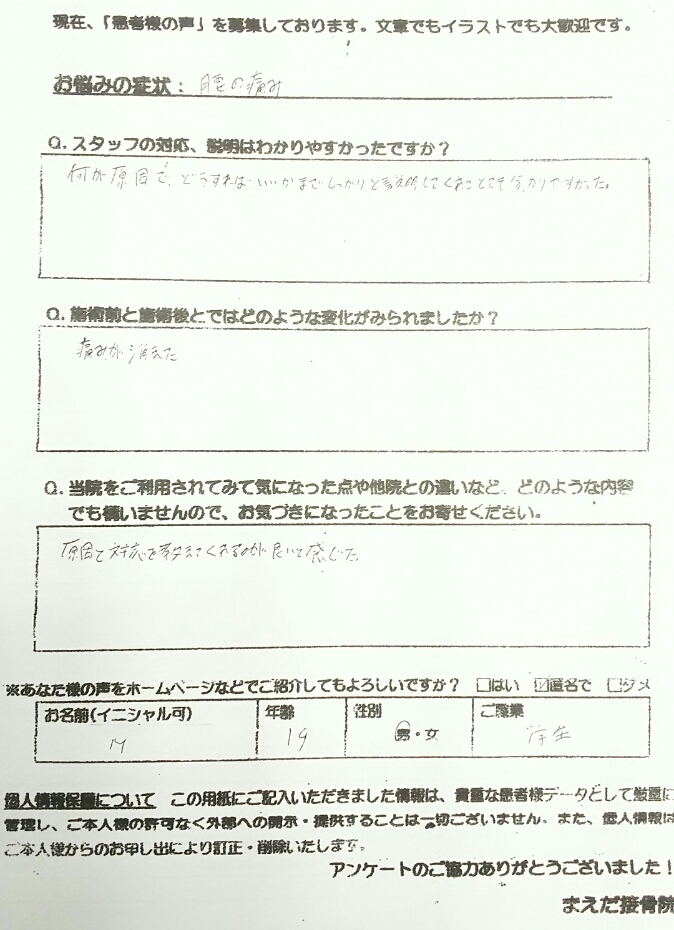 現在、「患者様の声」を募集しております。文章でもイラストでも大歓迎です。
お悩みの症状： 腰の痛み
Q. スタッフの対応、説明はわかりやすかったですか？
何が原因で、どうすればいいかまでしっかりと説明してくれてとても分かりやすかった。
Q. 施術前と施術後とではどのような変化がみられましたか？
痛みが消えた
Q. 当院をご利用されてみて気になった点や他院との違いなど、どのような内容
でも構いませんので、お気づきになったことをお寄せください。
原因と対応を教えてくれるのが良いと感じた。
※あなた様の声をホームページなどでご紹介してもよろしいですか？ □はい ☑匿名で □ダメ
お名前(イニシャル可) 年齢 性別 ご職業
M 19 男・女 学生
個人情報保護について この用紙にご記入いただきました情報は、貴重な患者様データとして厳重に
管理し、ご本人様の許可なく外部への開示・提供することは一切ございません。また、個人情報は
ご本人様からのお申し出により訂正・削除いたします。
アンケートのご協力ありがとうございました！
まえだ接骨院